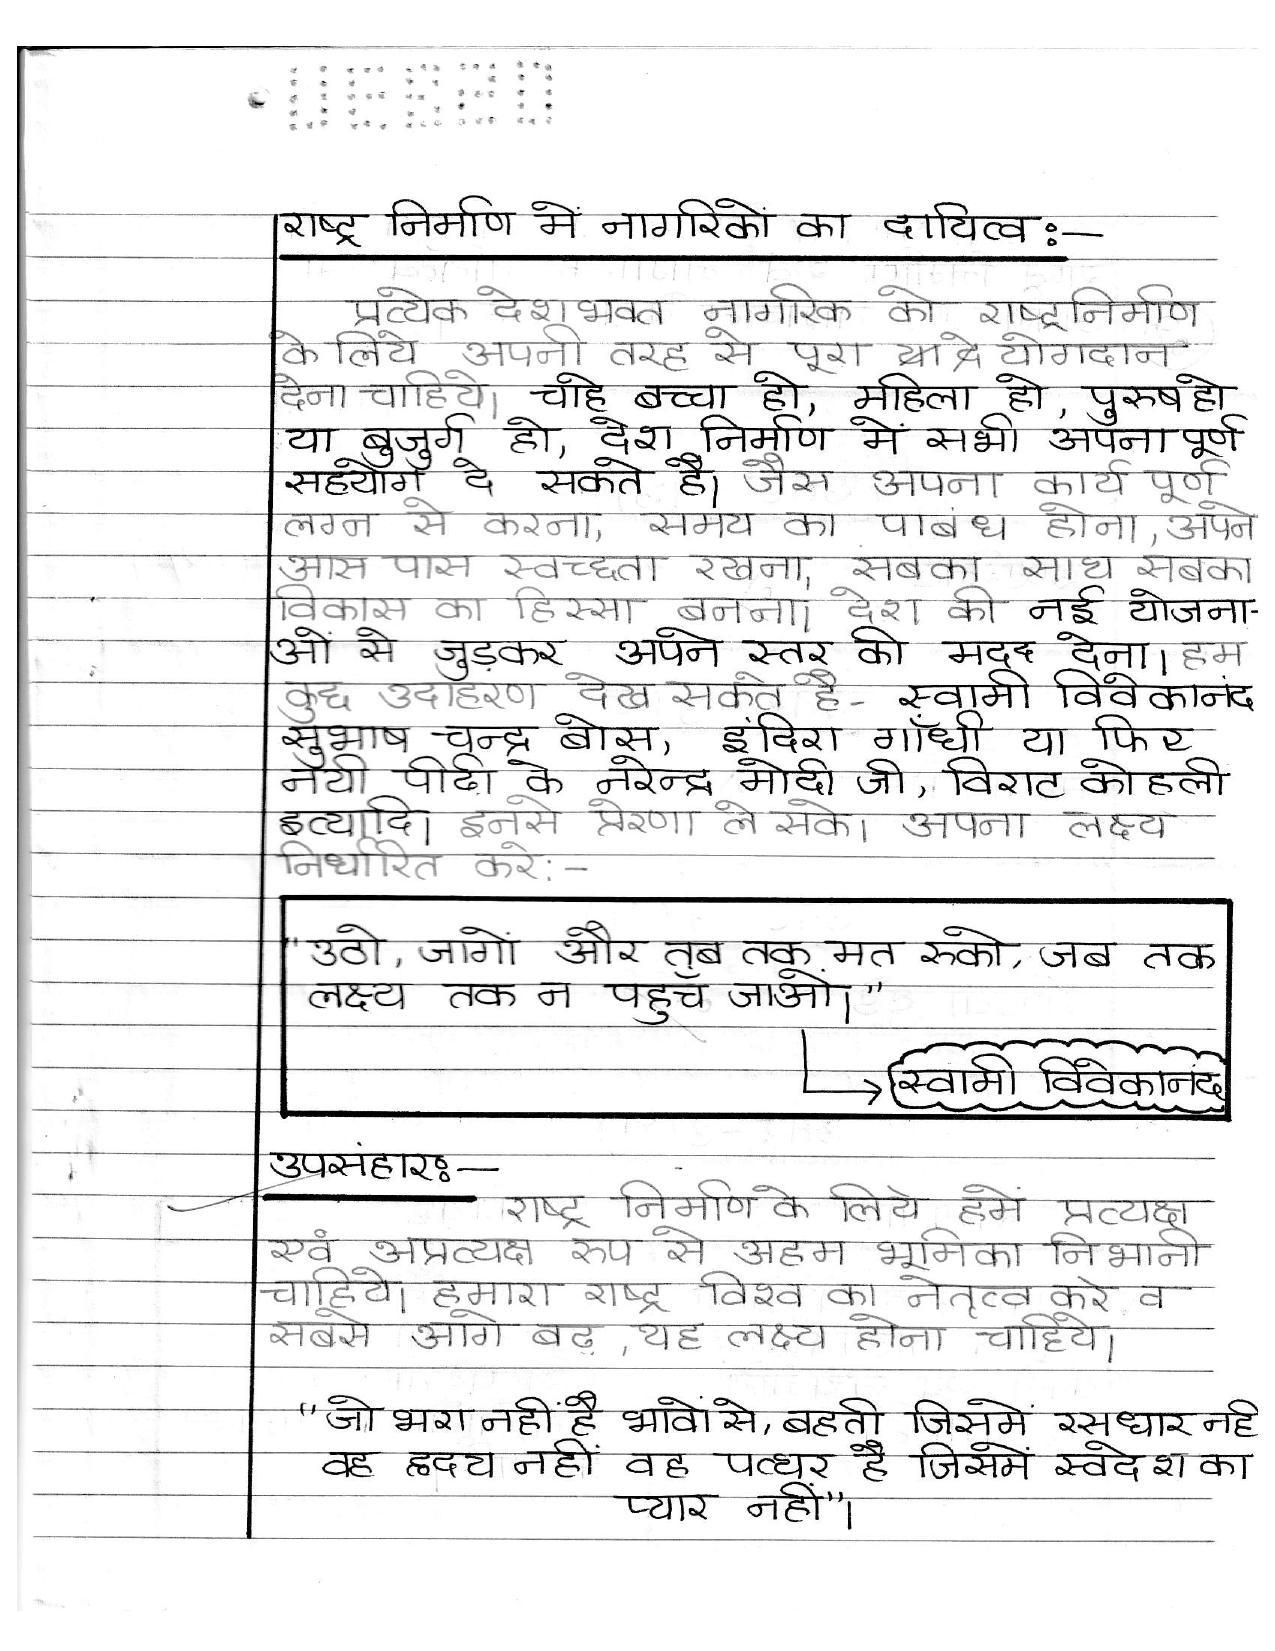 राष्ट्र निर्माण में नागरिकों का दायित्व :—
प्रत्येक देशभक्त नागरिक को राष्ट्रनिर्माण
के लिये अपनी तरह से पूरा योगदान
देना चाहिये। चाहे बच्चा हो, महिला हो, पुरुष हो
या बुजुर्ग हो, देश निर्माण में सभी अपना पूर्ण
सहयोग दे सकते हैं। जैसे अपना कार्य पूर्ण
लग्न से करना, समय का पाबंध होना, अपने
आस पास स्वच्छता रखना, सबका साथ सबका
विकास का हिस्सा बनना। देश की नई योजना-
ओं से जुड़कर अपने स्तर की मदद देना। हम
कुछ उदाहरण देख सकते है- स्वामी विवेकानंद
सुभाष चन्द्र बोस, इंदिरा गाँधी या फिर
नयी पीढी के नरेन्द्र मोदी जी, विराट कोहली
इत्यादि। इनसे प्रेरणा ले सके। अपना लक्ष्य
निर्धारित करे:-
"उठो, जागों और तब तक मत रुको, जब तक
लक्ष्य तक न पहुँच जाओ।"
स्वामी विवेकानंद
उपसंहारः—
राष्ट्र निर्माण के लिये हमें प्रत्यक्ष
एवं अप्रत्यक्ष रुप से अहम भूमिका निभानी
चाहिये। हमारा राष्ट्र विश्व का नेतृत्व करे व
सबसे आगे बढ़े, यह लक्ष्य होना चाहिये।
"जो भरा नहीं है भावों से, बहती जिसमें रसधार नही
वह ह्रदय नहीं वह पत्थर है जिसमें स्वदेश का
प्यार नहीं"।